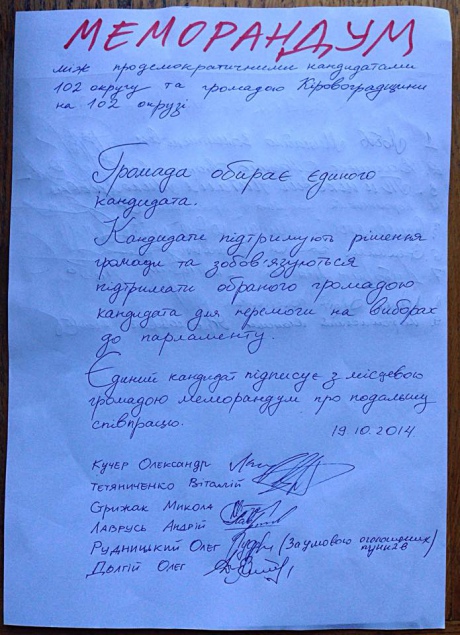 МЕМОРАНДУМ
між продемократичними кандидатами
102 округу та громадою Кіровоградщини
на 102 окрузі
Громада обирає єдиного
кандидата.
Кандидати підтримують рішення
громади та зобов'язуються
підтримати обраного громадою
кандидата для перемоги на виборах
до парламенту.
Єдиний кандидат підписує з місцевою
громадою меморандум про подальшу
співпрацю.
19.10.2014
Кучер Олександр
Тетяниченко Віталій
Стрижак Микола
Лаврусь Андрій
Рудницький Олег (За умовою оголошених)
пунктів
Долгій Олег